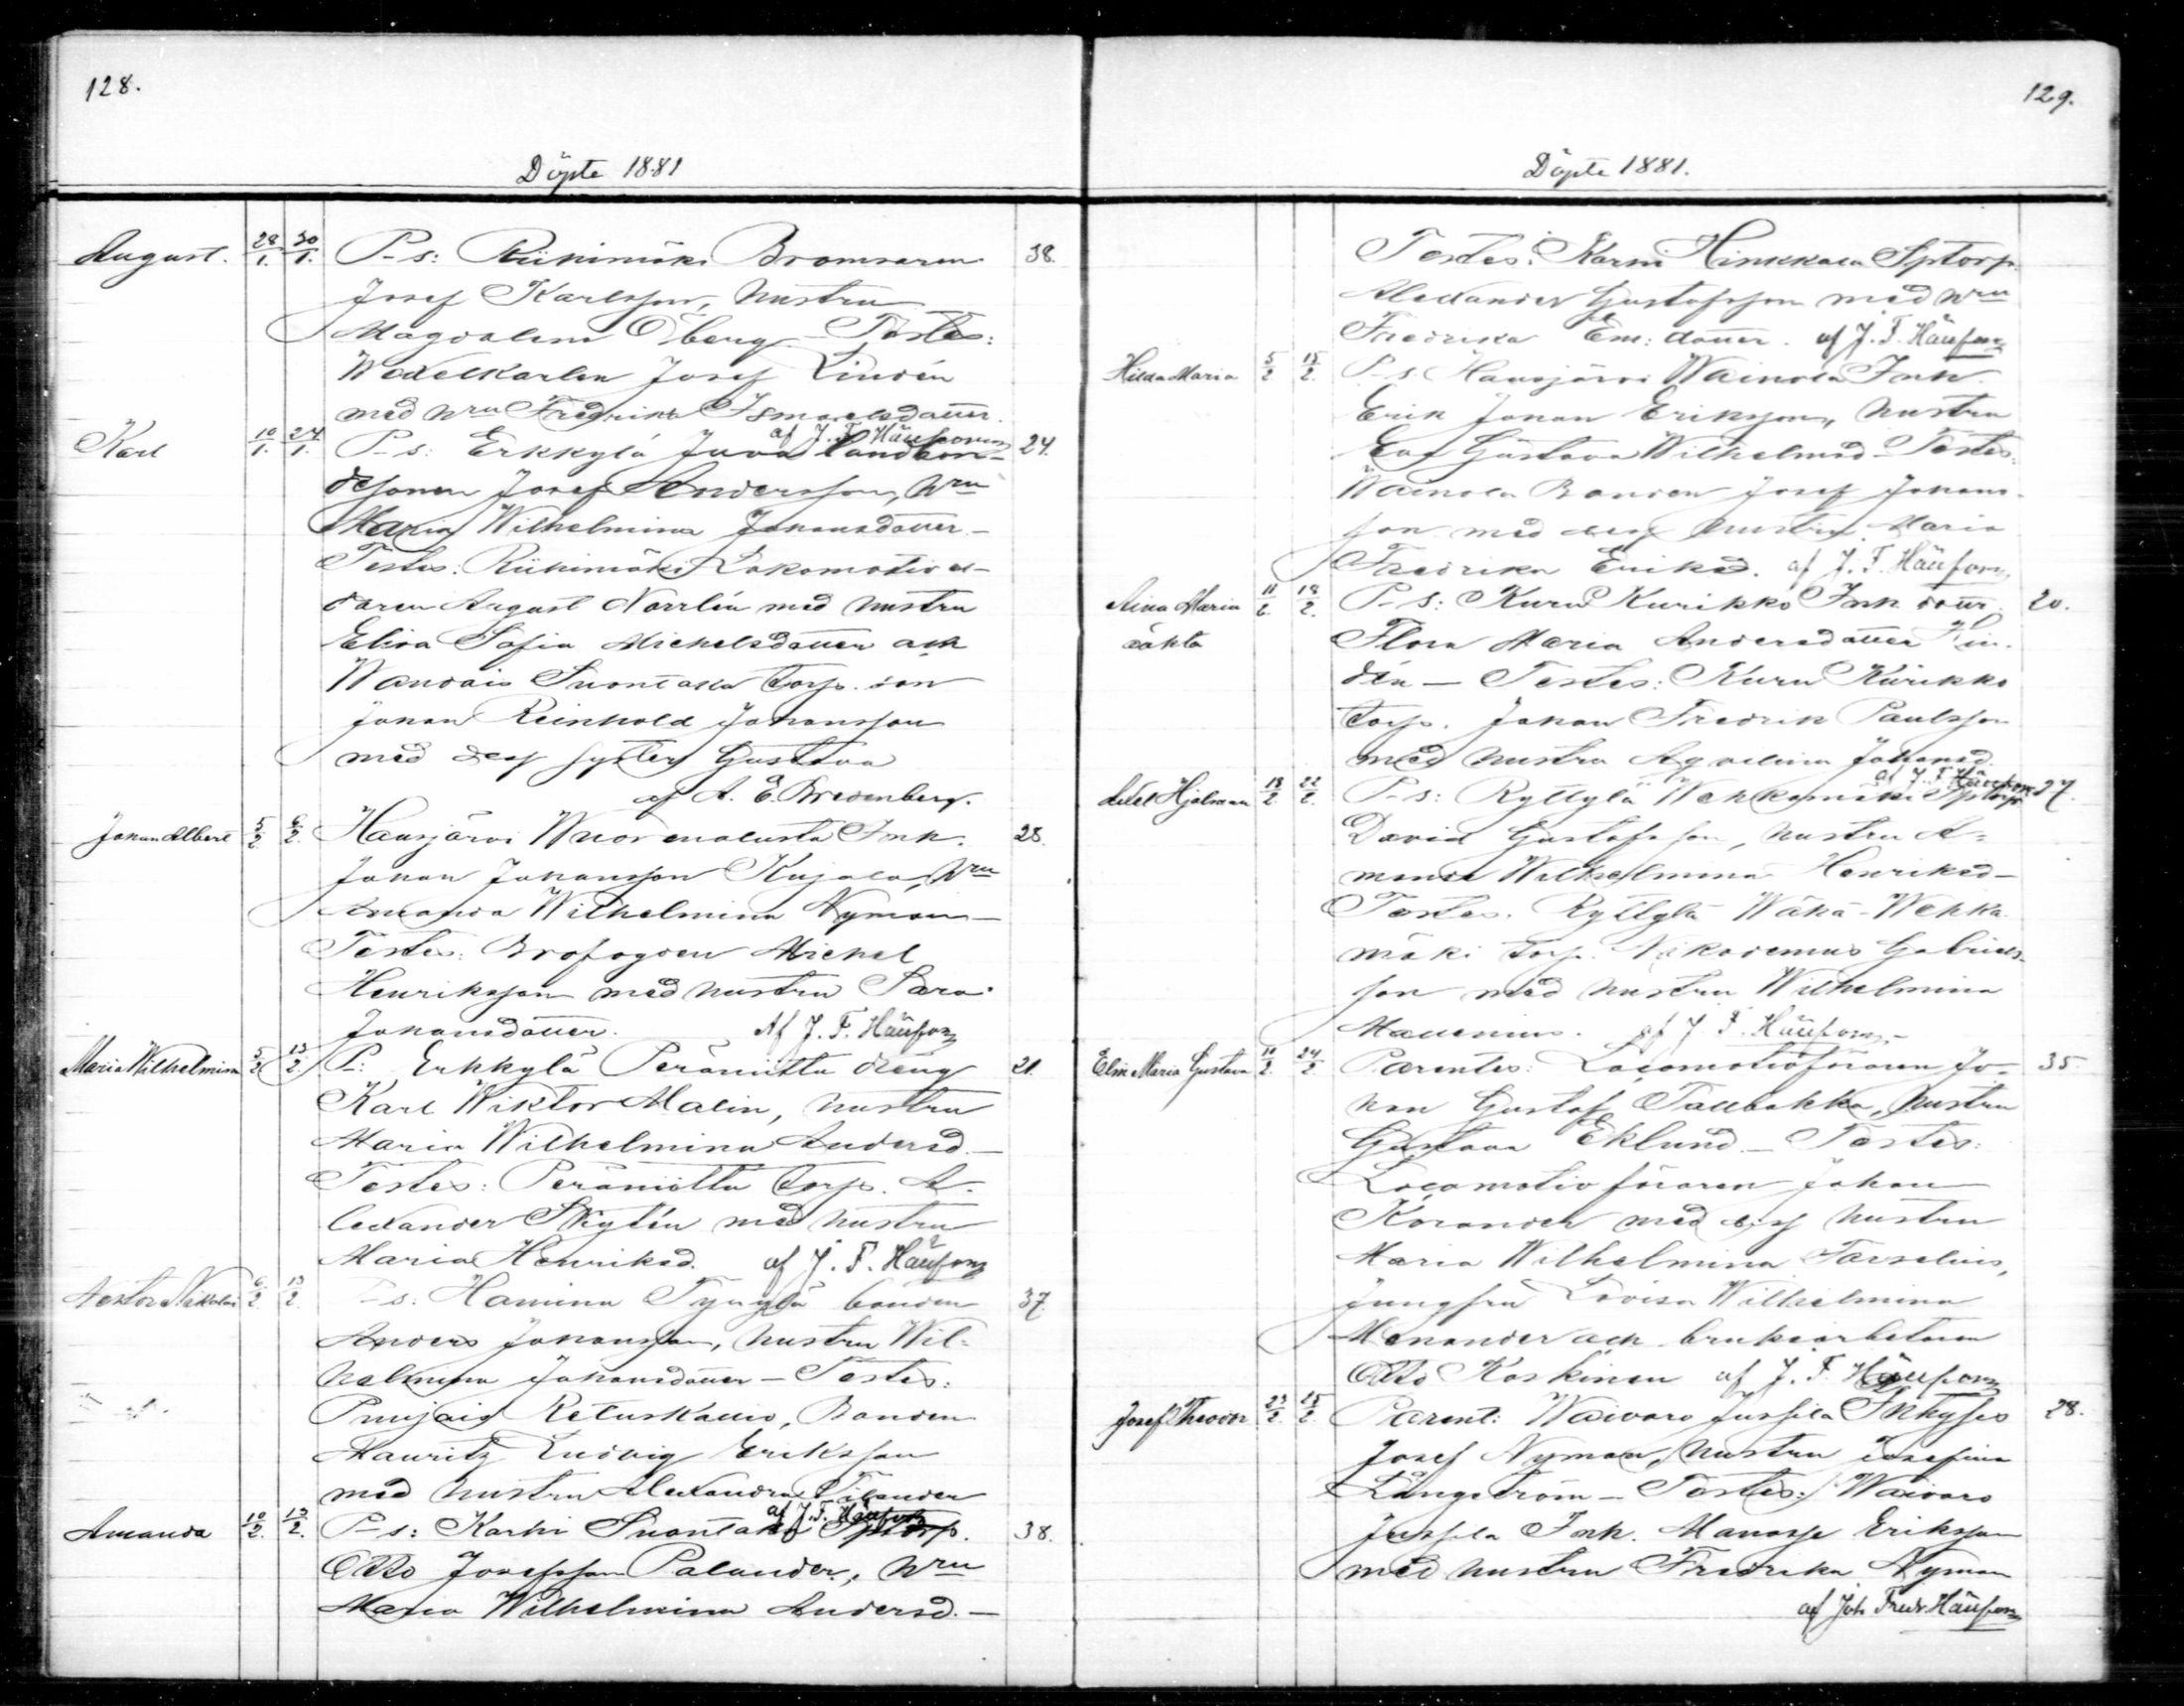 128.
Döpte 1881
August. 28/1. 30/1. P-s: Riihimäki Bromsaren 38.
Josef Karlsson, hustru
Magdalena Öberg - Testes:
Wedelkarlen Josef Lindén
med hru Fredrika Ismaelsdotter
af J. F. Häufors
Karl 10/1. 24/1. P-s: Erkkylä Juva landbon- 24.
desonen Josef Andersson, hru
Maria Wilhelmina Johansdotter -
Testes: Riihimäki Lokomotiv el-
daren August Norrlén med hustru
Elisa Sofia Michelsdotter och
Wandais Suontaka torp. son
Johan Reinhold Johansson
med dess syster Gustava
af A. E. Bredenberg.
Johan Albert 5/2. 6/2. Hausjärvi Wuorenalusta Inh. 28.
Johan Johansson Kujala, hru
Amanda Wilhelmina Nyman -
Testes: Brofogden Michel
Henriksson med hustru Sara
Johansdotter. Af J. F. Häufors
Maria Wilhelmina 5/2 13/2 P: Erkkylä dräng 21.
Karl Wiktor Malin, hustru
Maria Wilhelmina Andersd. -
Testes: torp. A-
lexander Skytén med hustru
Maria Henriksd. af J. F. Häufors
Nestor Nikolai 6/2 13/2. P-s: Hamina Tynylä bonden 37.
Anders Johansson, hustru Wil-
helmina Johansdotter - Testes:
Puujais Retuskallio, Bonden
Mauritz Ludvig Eriksson
med hustru Alexandra
af J. F. Häufors
Amanda 10/2. 13/2. P-s: Karhi Suontaka Sptorp. 38.
Otto Josefsson Palander, hru
Maria Wilhelmina Andersd. -
129.
Döpte 1881.
Testes: Karhi Hinkkala Sptorp.
Alexander Gustafsson med hru
Fredrika Em: dotter. af J. F. Häufors
Hilda Maria 5/2 15/2. P-s Hausjärvi Wainola Inh.
Erik Johan Eriksson, hustru
Eva Gustava Wilhelmsd - Testes:
Wainola Bonden Josef Johans-
son med dess hustru Maria
Fredrika Eriksd. af J. F. Häufors
Aina Maria 19/2. P-s: Kuru Kurikko Inh. dottr. 20.
oäkta Flora Maria Andersdotter Lin-
dén - Testes: Kuru Kurikko
torp. Johan Fredrik Paulsson
med hustru Aqvilina Johansd.
af J. F. Häufors
Axel Hjalmar 18/2 22/2. P-s: Ryttylä Wehkamäki Sptorp 27.
David Gustafsson, hustru A-
manda Wilhelmina Henriksd -
Testes. Ryttylä Wähä-Wehka-
mäki torp. Nikodemus Gabriels-
son med hustru Wilhelmina
Mallenius. af J. F. Häufors. -
Elin Maria Gustava 11/2. 24/2. Parentes: Locomotivföraren Jo- 35.
han Gustaf Tallbakka, hustru
Gustava Eklund - Testes:
Locomotivföraren Johan
Korander med dess hustru
Maria Wilhelmina Forselius,
jungfru Lovisa Wilhelmina
Menander och bruksarbetaren
Otto Koskinen af J. F. Häufors
Josef Theodor 23/2. 25/2. Parent: Waivaro Jussila Inhyses 28.
Josef Nyman, hustru Josefina
Långström - Testes: Waivaro
Jussila Inh. Manasse Eriksson
med hustru Fredrika Nyman
af Joh Fredr Häufors